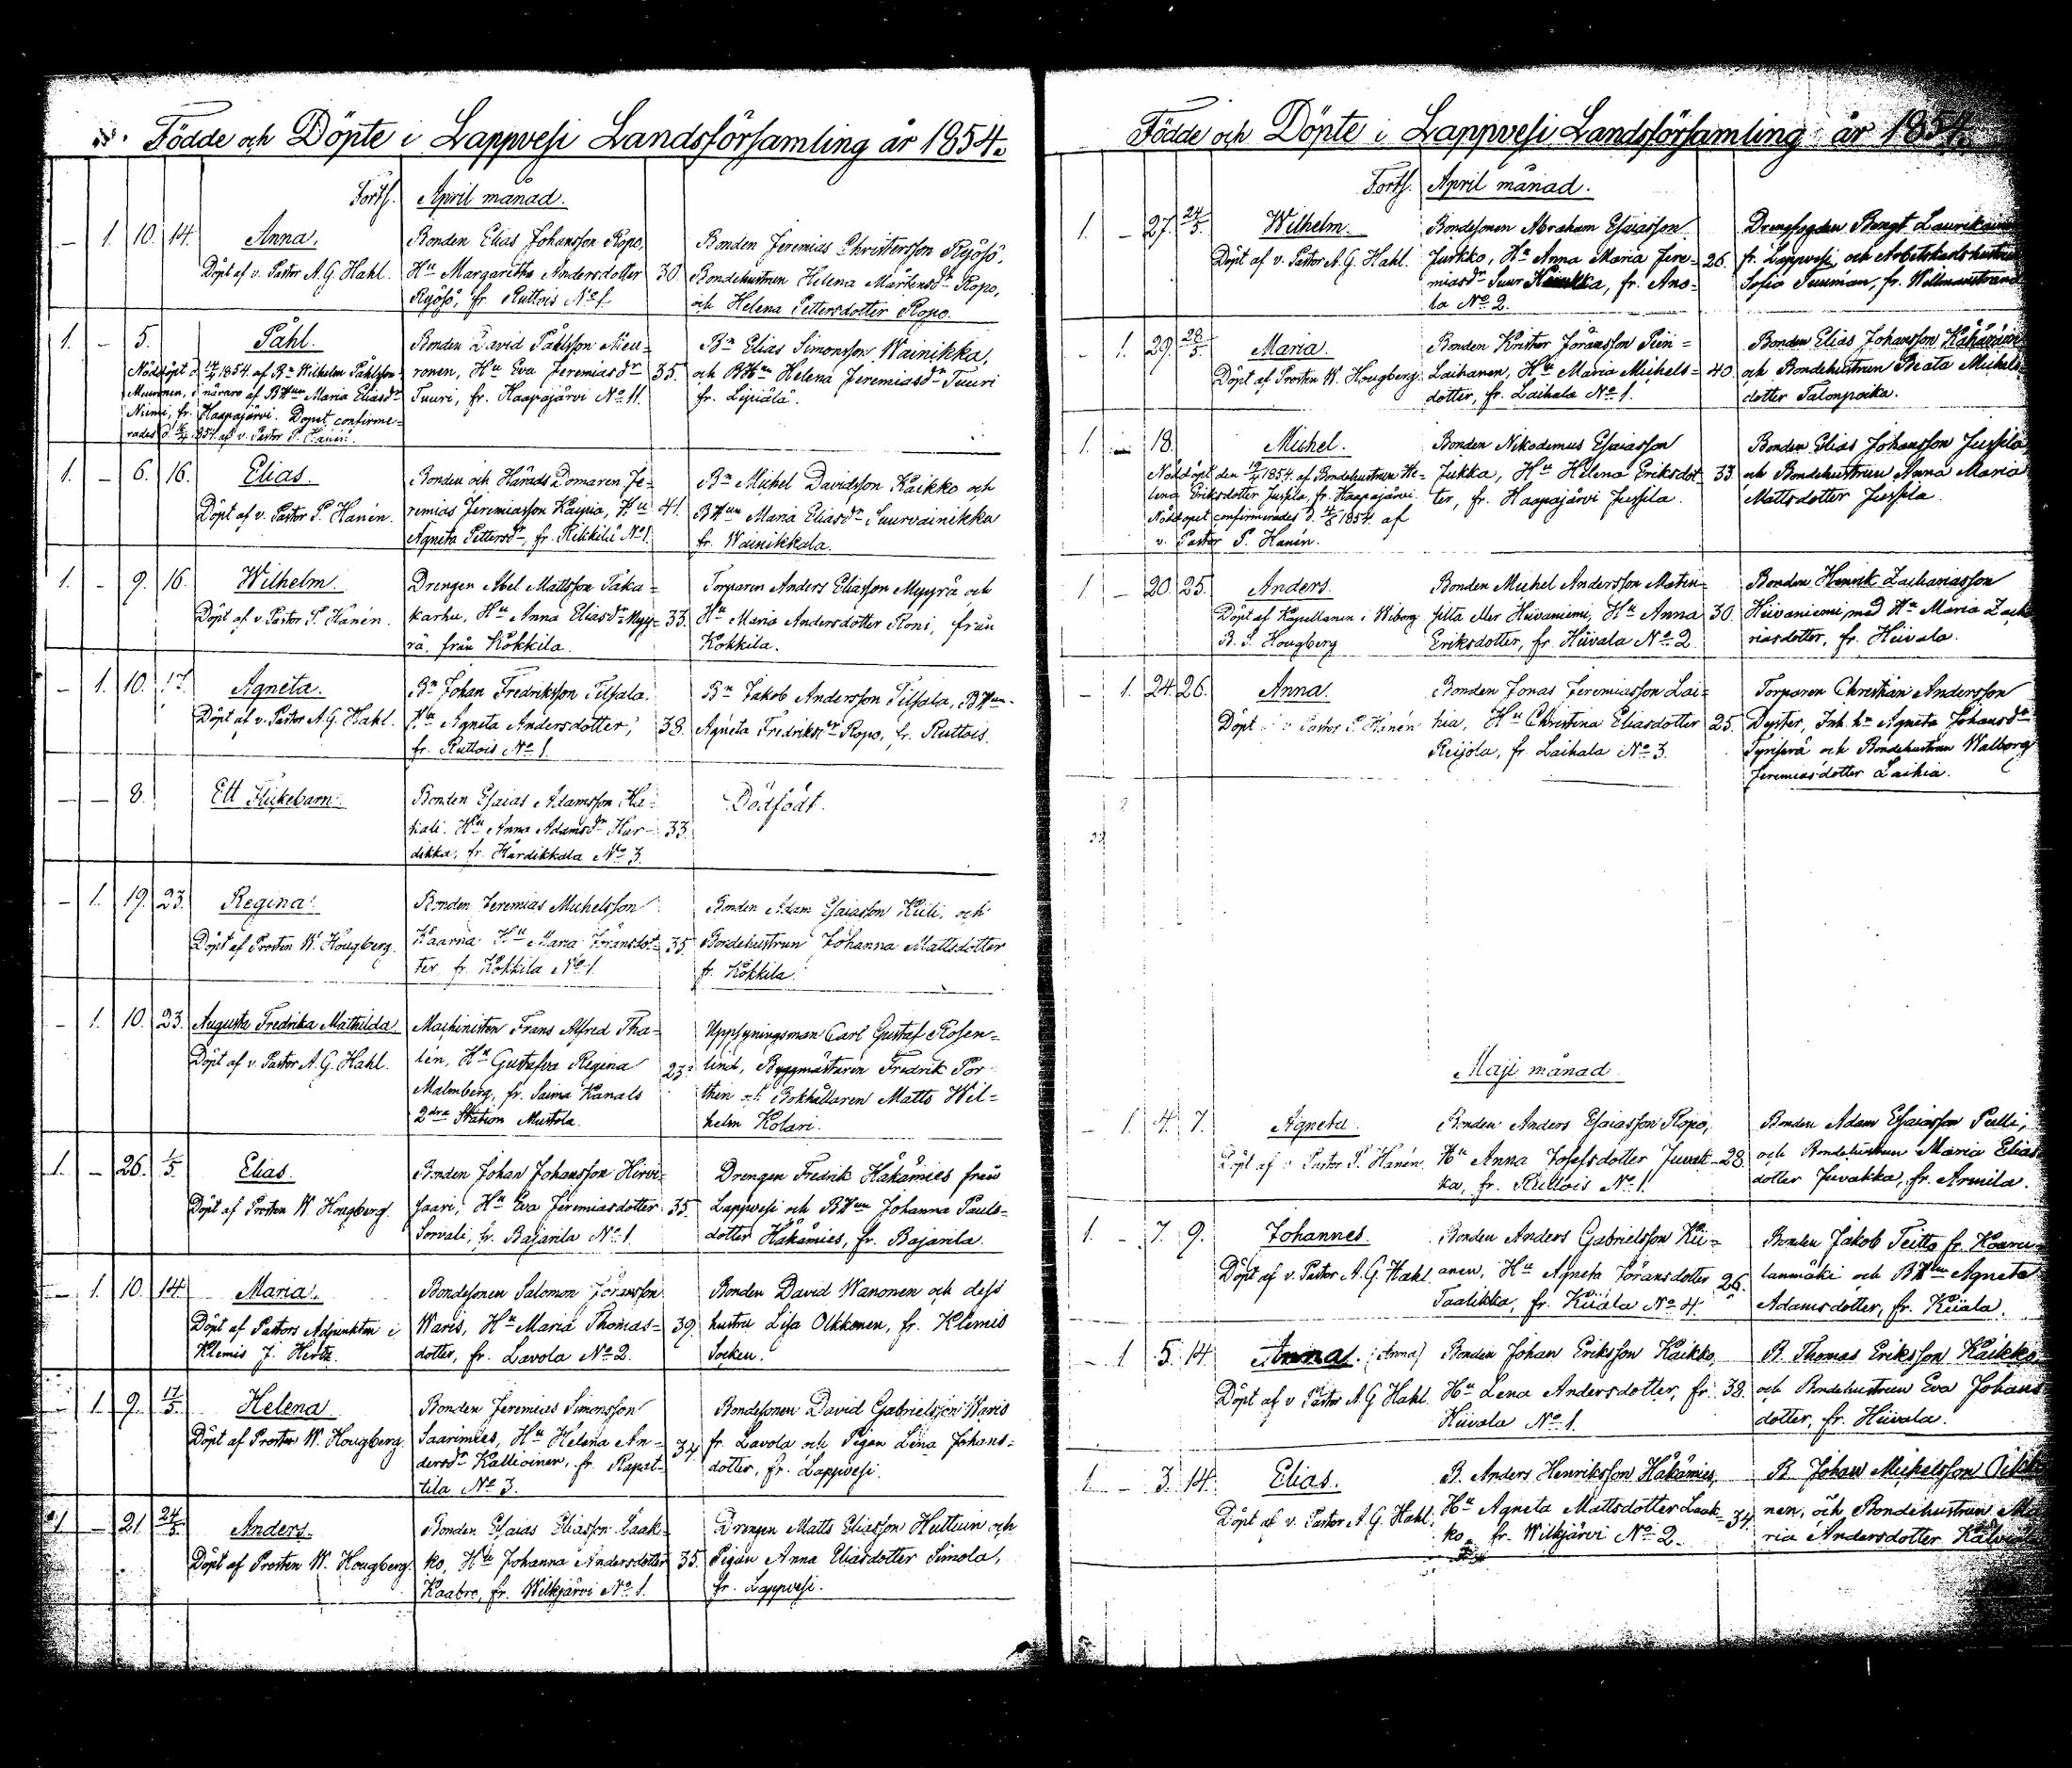 Födde och Döpte i Lappvesi Landsförsamling år 1854.
Forts. April månad.
– 1. 10. 14. Anna.
Döpt af v. Pastor A. G. Hahl.
Bonden Elias Johansson Ropo,
Hu Margaretha Andersdotter 30.
Ryösö, fr. Ruttois No 1.
Bonden Jeremias Christersson Ryösö,
Bondehustrun Helena Mårtensdr Ropo,
och Helena Pettersdotter Ropo.
1. – 5. Påhl.
Nöddöpt d. 1854. af Bn Wilhelm Påhlsson
Muuronen, i närvaro af BHun Maria Eliasdr
Niemi, fr. Haapajärvi. Dopet confirme-
rades d. 1854 af v. Pastor P. Hanén.
Bonden David Påhlsson Nieu-
ronen, Hu Eva Jeremiasdr 35.
Tuuri, fr. Haapajärvi No 11.
Bn Elias Simonsson Wainikka,
och BHun Helena Jeremiasdr Tuuri
fr. Lyiälä.
1. – 6. 16. Elias.
Döpt af v. Pastor P. Hanén.
Bonden och Härads Domaren Je-
remias Jeremiasson Kaipia, Hu 41.
Agneta Pettersdr, fr. Rikkilä No 1.
Bn Michel Davidsson Kaikko och
BHun Maria Eliasdr Suurvainikka
fr. Wainikkala.
1. – 9. 16. Wilhelm.
Döpt af v. Pastor P. Hanén.
Drengen Abel Mattsson Taka-
karhu, Hu Anna Eliasdr Myy- 33.
rä, från Kökkilä.
Torparen Anders Eliasson Myyrä och
Hu Maria Andersdotter Roni, från
Kokkila.
– 1. 10. 17. Agneta.
Döpt af v. Pastor A. G. Hahl.
Bn Johan Fredriksson Tilsala.
Hu Agneta Andersdotter, 38.
fr. Ruttois No 1.
Bn Jakob Andersson Tilsala, BHun
Agneta Fredriksdr Ropo, fr. Ruttois.
– – 8. Ett Flickebarn.
Bonden Esaias Adamsson Ha-
kali. Hu Anna Adamsdr Har- 33.
dikka, fr. Hårdikkala No 3.
Dödfödt.
– 1. 19. 23. Regina.
Döpt af Prosten W. Hougberg.
Bonden Jeremias Michelsson
Kaarna Hu Maria Jöransdot- 35.
ter fr. Kokkila No 1.
Bonden Adam Esaiasson Kiili, och
Bondehustrun Johanna Mattsdotter
fr. Kökkila.
– 1. 10. 23. Augusta Fredrika Mathilda
Döpt af v. Pastor A. G. Hahl.
Machinisten Frans Alfred Tha-
lén, Hu Gustafva Regina 23.
Malmberg, fr. Saima Kanals
2dra Station Mustola.
Uppsyningsman Carl Gustaf Rosen-
lind, Byggmästaren Fredrik Por-
thén och Bokhållaren Matts Wil-
helm Kolari.
1. – 26. 1/5. Elias.
Döpt af Prosten W. Hougberg.
Bonden Johan Johansson Hirvi-
saari, Hu Eva Jeremiasdotter 35.
Sorvali, fr. Bajarila No 1.
Drengen Fredrik Häkämies från
Lappvesi och BHun Johanna Pauls-
dotter Häkämies, fr. Bajarila.
– 1. 10. 14 Maria.
Döpt af Pastors Adjunkten i
Klemis J. Hertz.
Bondesonen Salomon Jöransson
Waris, Hu Maria Thomas- 39.
dotter, fr. Lavola No 2.
Bonden David Wanonen och dess
hustru Lisa Olkkonen, fr. Klemis
Socken.
– 1. 9. 17/5. Helena
Döpt af Prosten W. Hougberg.
Bonden Jeremias Simonsson
Saarimies, Hu Helena An- 34.
dersdr Kallioinen, fr. Rapat-
tila No 3.
Bondesonen David Gabrielsson Waris
fr. Lavola och Pigan Lena Johans-
dotter, fr. Lappvesi.
1 – 21 24/5. Anders.
Döpt af Prosten W. Hougberg.
Bonden Esaias Eliasson Laak-
ko, Hu Johanna Andersdotter 35.
Kaabre, fr. Wilkjärvi No 1.
Drengen Matts Eliasson Huttuin och
Pigan Anna Eliasdotter Simola,
fr. Lappvesi.
Födde och Döpte i Lappvesi Landsförsamling år 1854.
Forts. April månad.
1. – 27. 24/5. Wilhelm.
Döpt af v. Pastor A. G. Hahl.
Bondesonen Abraham Esaiasson
Jurkko, Hu Anna Maria Jere- 26.
miasdr Suur, fr. Ano-
la No 2.
Drengfogden Bengt
fr. Lappvesi och Arbetskarlshustrun
Sofia Tuuman, fr. Willmanstrand
– 1. 29. 28/5. Maria.
Döpt af Prosten W. Hougberg.
Bonden Krister Jöransson Pien-
Laihanen, Hu Maria Michels- 40.
dotter, fr. Laihala No 1.
Bonden Elias Johansson
och Bondehustrun Beata Michels-
dotter Talonpoika.
1. – 18. Michel.
Nöddöpt den 1854. af Bondehustrun He-
lena Eriksdotter Jussila, fr. Haapajärvi.
Nöddopet confirmerades d. 1854. af
v. Pastor P. Hanén.
Bonden Nikodemus Esaiasson
Jukka, Hu Helena Eriksdot- 33.
ter, fr. Haapajärvi Jussila.
Bonden Elias Johansson Jussila
och Bondehustrun Anna Maria
Mattsdotter Jussila.
1 – 20. 25. Anders.
Döpt af Kapellanen i Wiborg
B. S. Hougberg
Bonden Michel Andersson Matin-
silta Mer Hiivaniemi, Hu Anna 30.
Eriksdotter, fr. Hiivala No 2.
Bonden Henrik Zachariasson
Hiivaniemi med Hu Maria Zacha-
riasdotter, fr. Hiivala.
– 1. 24. 26. Anna.
Döpt Pastor P. Hanén
Bonden Jonas Jeremiasson Lai-
hia, Hu Christina Eliasdotter 25.
Reijola, fr. Laihala No 3.
Torparen Christian Andersson
Dyster, Inh. hu Agneta Johansdr
Tyriserä och Bondehustrun Walborg
Jeremiasdotter Laihia.
Maji månad
– 1. 4. 7. Agneta.
Döpt af v. Pastor P. Hanén.
Bonden Anders Esaiasson Ropo,
Hu Anna Josefsdotter Juvak- 28.
ka, fr. Ruttois No 1.
Bonden Adam Esaiasson Pulli,
och Bondehustrun Maria Elias-
dotter Juvakka, fr. Armila.
1. – 7. 9. Johannes.
Döpt af v. Pastor A. G. Hahl.
Bonden Anders Gabrielsson Kii-
anen, Hu Agneta Jöransdotter 26.
Taalikka, fr. Kiiala No 4.
Bonden Jakob Teitto fr.
lanmäki och BHun Agneta
Adamsdotter, fr. Kiiala.
– 1 5. 14. Anna. (Anna)
Döpt af v. Pastor A. G. Hahl.
Bonden Johan Eriksson Kaikko,
Hu Lena Andersdotter, fr. 38.
Hiivala No 1.
B. Thomas Eriksson Kaikko
och Bondehustrun Eva Johans-
dotter, fr. Hiivala.
1 – 3. 14. Elias.
Döpt af v. Pastor A. G. Hahl.
B. Anders Henriksson Häkämies,
Hu Agneta Mattsdotter Laak- 34.
ko, fr. Wilkjärvi No 2.
B. Johan Mickelsson
nen, och Bondehustrun Ma-
ria Andersdotter